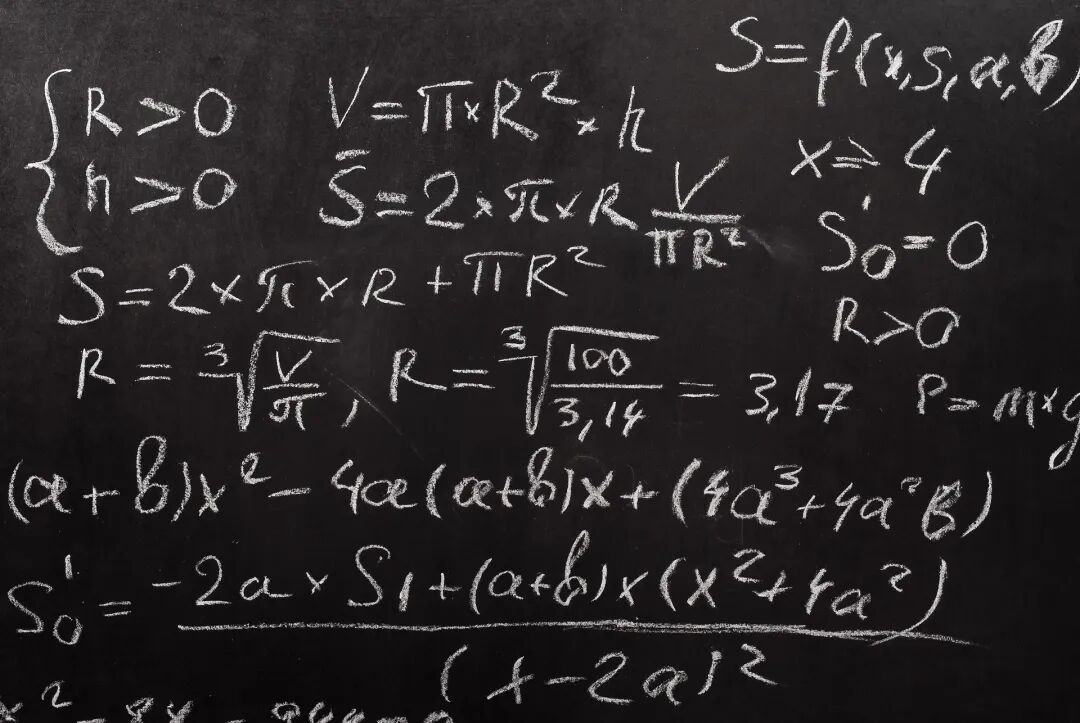 S=f(x,S,a,b)
{R>0 V=π×R²×h
h>0 S̄=2×π×R V/πR² x=>4
S=2×π×R+πR² S₀'=0
R>0
R=³√(V/π), R=³√(100/3,14)=3,17 P=m×g
(a+b)x²-4a(a+b)x+(4a³+4a²b)
S₀'=(-2a×S₁+(a+b)×(x²+4a²))/(x-2a)²